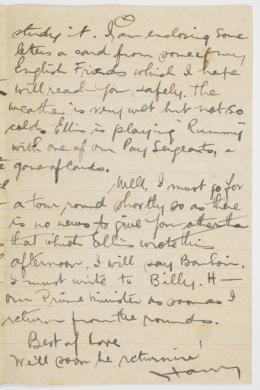 study it. I am enclosing some
letters a card from some of my
English Friends which I hope
will reach you safely. The
weather is very wet but not so
cold. Ellis is playing Rummy
with one of our Pay Sergeants, a
game of cards.
Well, I must go for
a tour round shortly so as there
is no news to give you other than
that which Ellis wrote this
afternoon, I will say Bon Soir.
I must write to Billy. H—
our Prime Minister as soon as I
return from the rounds.
Best of Love
We'll soon be returnin'
Harry